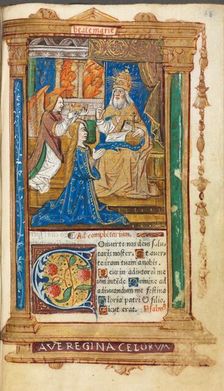 beate marie
Ad completorium.
Converte nos deus salu
taris noster. Et averte
iram tuam a nobis.
Deus in adiutoriū me
um intēde Domine ad
adiuvandum me festina
Gloria patri & filio
Sicut erat.
AVE REGINA CELORVM